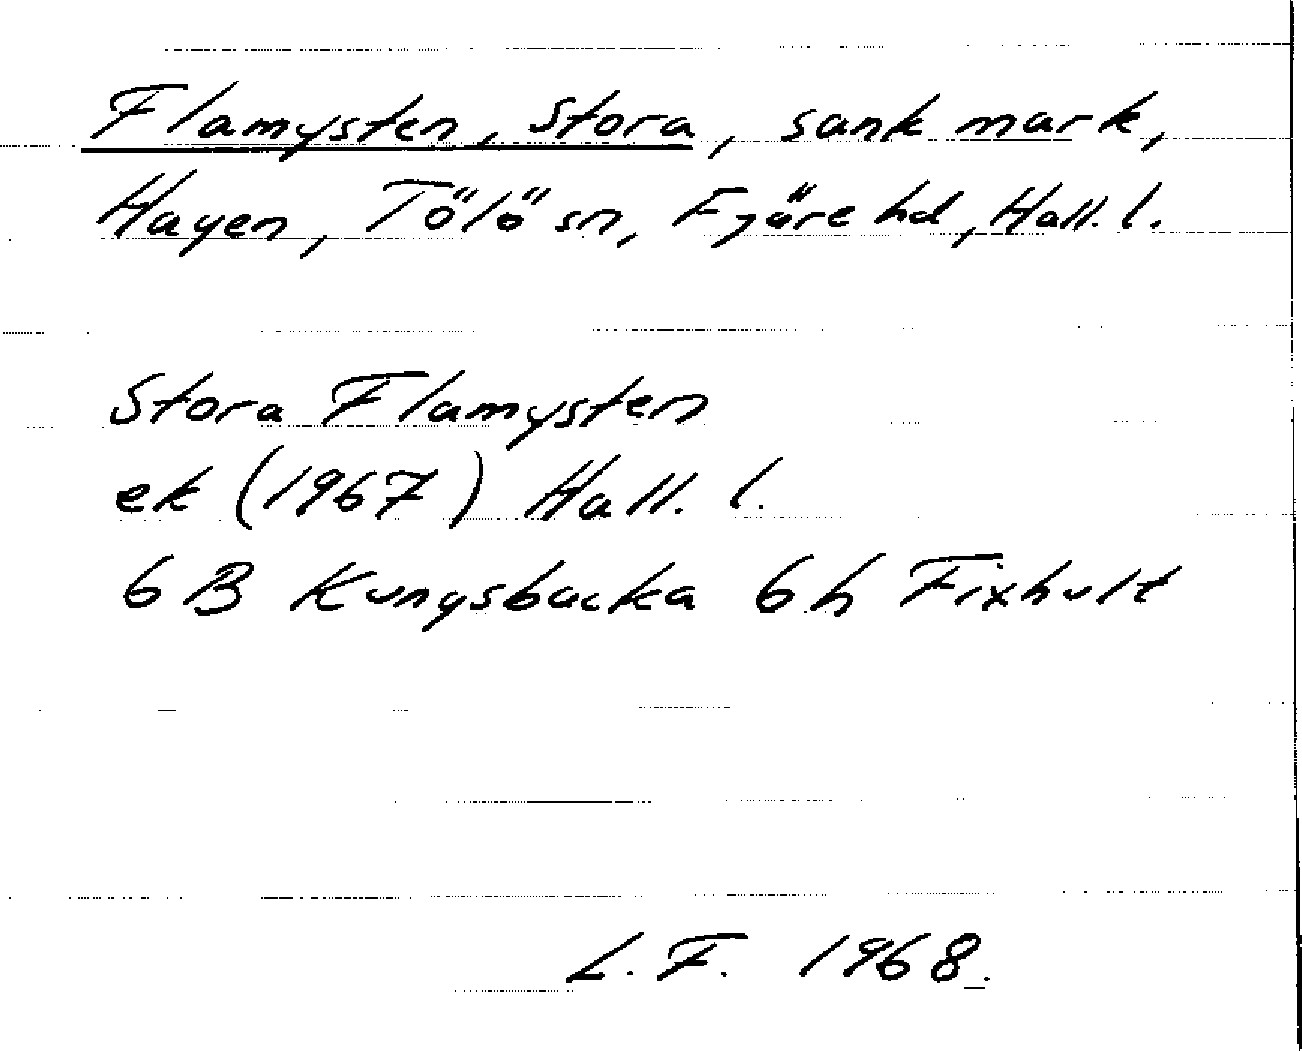 Flamysten, Stora, sank mark,
Hagen, Tölö sn, Fjäre hd, Hall. l.
Stora Flamysten
ek (1967) Hall. l.
6 B Kungsbacka 6 h Fixhult
L. F. 1968.